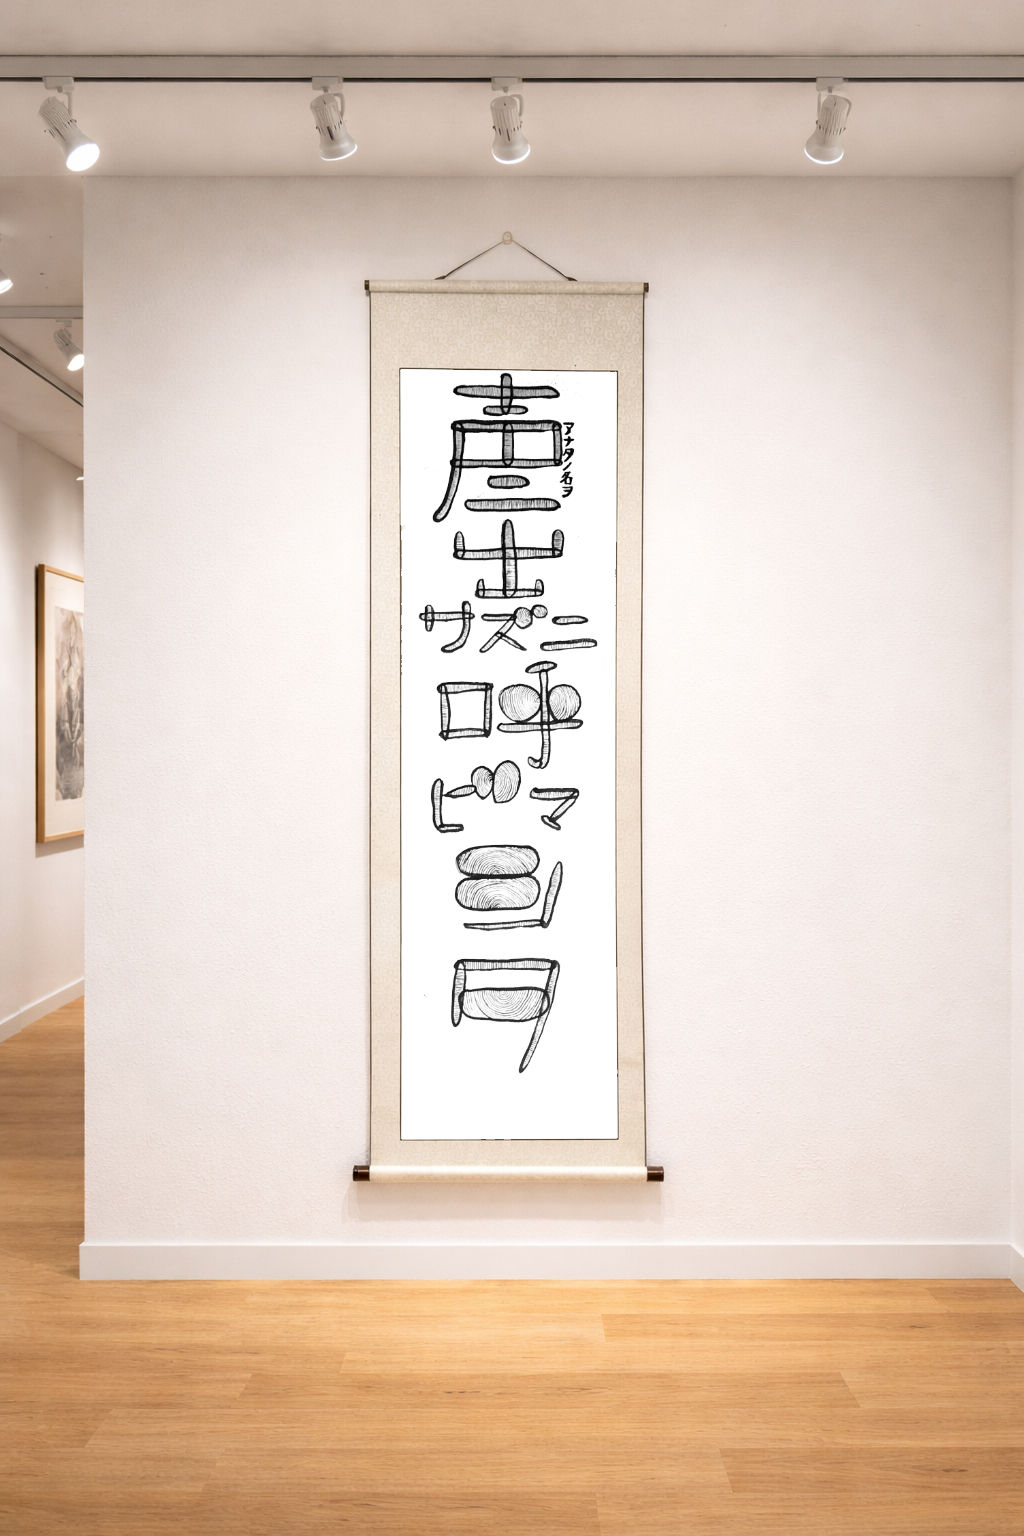 アナタノ名ヲ
声ニ出サズニ呼ビマシタ